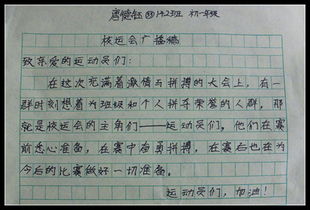 校运会广播稿
致亲爱的运动员们：
在这次充满着激情与拼搏的大会上，有一
群时刻想着为班级和个人拼夺荣誉的人群，那
就是校运会的主角们——运动员们。他们在赛
前悉心准备，在赛中奋勇拼搏，在赛后也在为
今后的比赛做好一切准备。
运动员们，加油！